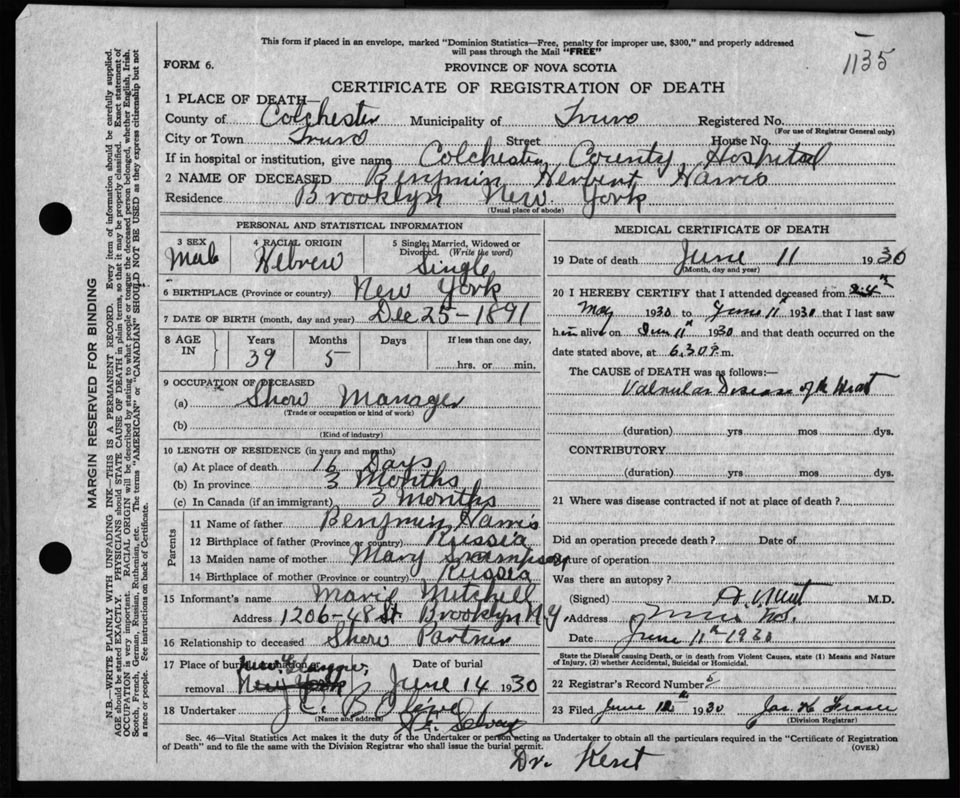 This form if placed in an envelope, marked "Dominion Statistics—Free, penalty for improper use, $300," and properly addressed
will pass through the Mail "FREE"
1135
FORM 6.
PROVINCE OF NOVA SCOTIA
CERTIFICATE OF REGISTRATION OF DEATH
1 PLACE OF DEATH—
County of Colchester Municipality of Truro Registered No.
(For use of Registrar General only)
City or Town Truro Street House No.
If in hospital or institution, give name Colchester County Hospital
2 NAME OF DECEASED Benjmin Herbert Harris
Residence Brooklyn New York
(Usual place of abode)
PERSONAL AND STATISTICAL INFORMATION
3 SEX Male
4 RACIAL ORIGIN Hebrew
5 Single, Married, Widowed or Divorced. (Write the word) Single
6 BIRTHPLACE (Province or country) New York
7 DATE OF BIRTH (month, day and year) Dec 25 - 1891
8 AGE IN Years 39 Months 5 Days If less than one day, hrs. or min.
9 OCCUPATION OF DECEASED
(a) Show Manager
(Trade or occupation or kind of work)
(b)
(Kind of industry)
10 LENGTH OF RESIDENCE (in years and months)
(a) At place of death 16 Days
(b) In province 3 Months
(c) In Canada (if an immigrant) 3 Months
Parents
11 Name of father Benjmin Harris
12 Birthplace of father (Province or country) Russia
13 Maiden name of mother Mary
14 Birthplace of mother (Province or country) Russia
15 Informant's name Marie Mitchell
Address 1206-48 St. Brooklyn N.Y
16 Relationship to deceased Show Partner
17 Place of burial, cremation or removal New York
Date of burial June 14 1930
18 Undertaker J.C. B.
(Name and address)
MEDICAL CERTIFICATE OF DEATH
19 Date of death June 11 1930
(Month, day and year)
20 I HEREBY CERTIFY that I attended deceased from 24th
May 1930 to June 11th 1930 that I last saw
him alive on June 11th 1930 and that death occurred on the
date stated above, at 6.30 P.m.
The CAUSE of DEATH was as follows:—
Valvular Disease of the Heart
(duration) yrs mos dys.
CONTRIBUTORY
(duration) yrs mos dys.
21 Where was disease contracted if not at place of death?
Did an operation precede death? Date of
Nature of operation
Was there an autopsy?
(Signed) Kent M.D.
Address Truro N.S.
Date June 11th 1930
State the Disease causing Death, or in death from Violent Causes, state (1) Means and Nature
of Injury, (2) whether Accidental, Suicidal or Homicidal.
22 Registrar's Record Number
23 Filed June 12th 1930 Jas. H Fraser
(Division Registrar)
Sec. 46—Vital Statistics Act makes it the duty of the Undertaker or person acting as Undertaker to obtain all the particulars required in the "Certificate of Registration
of Death" and to file the same with the Division Registrar who shall issue the burial permit.
(OVER)
Dr. Kent
MARGIN RESERVED FOR BINDING
N.B.—WRITE PLAINLY WITH UNFADING INK—THIS IS A PERMANENT RECORD. Every item of information should be carefully supplied.
AGE should be stated EXACTLY. PHYSICIANS should STATE CAUSE OF DEATH in plain terms, so that it may be properly classified. Exact statement of
OCCUPATION is very important. RACIAL ORIGIN will be described by stating to what people or tongue the deceased person belonged, whether English, Irish,
Scotch, French, German, Russian, Ruthenian, etc. The terms "AMERICAN" or "CANADIAN" SHOULD NOT BE USED as they express citizenship but not
a race or people. See instructions on back of Certificate.